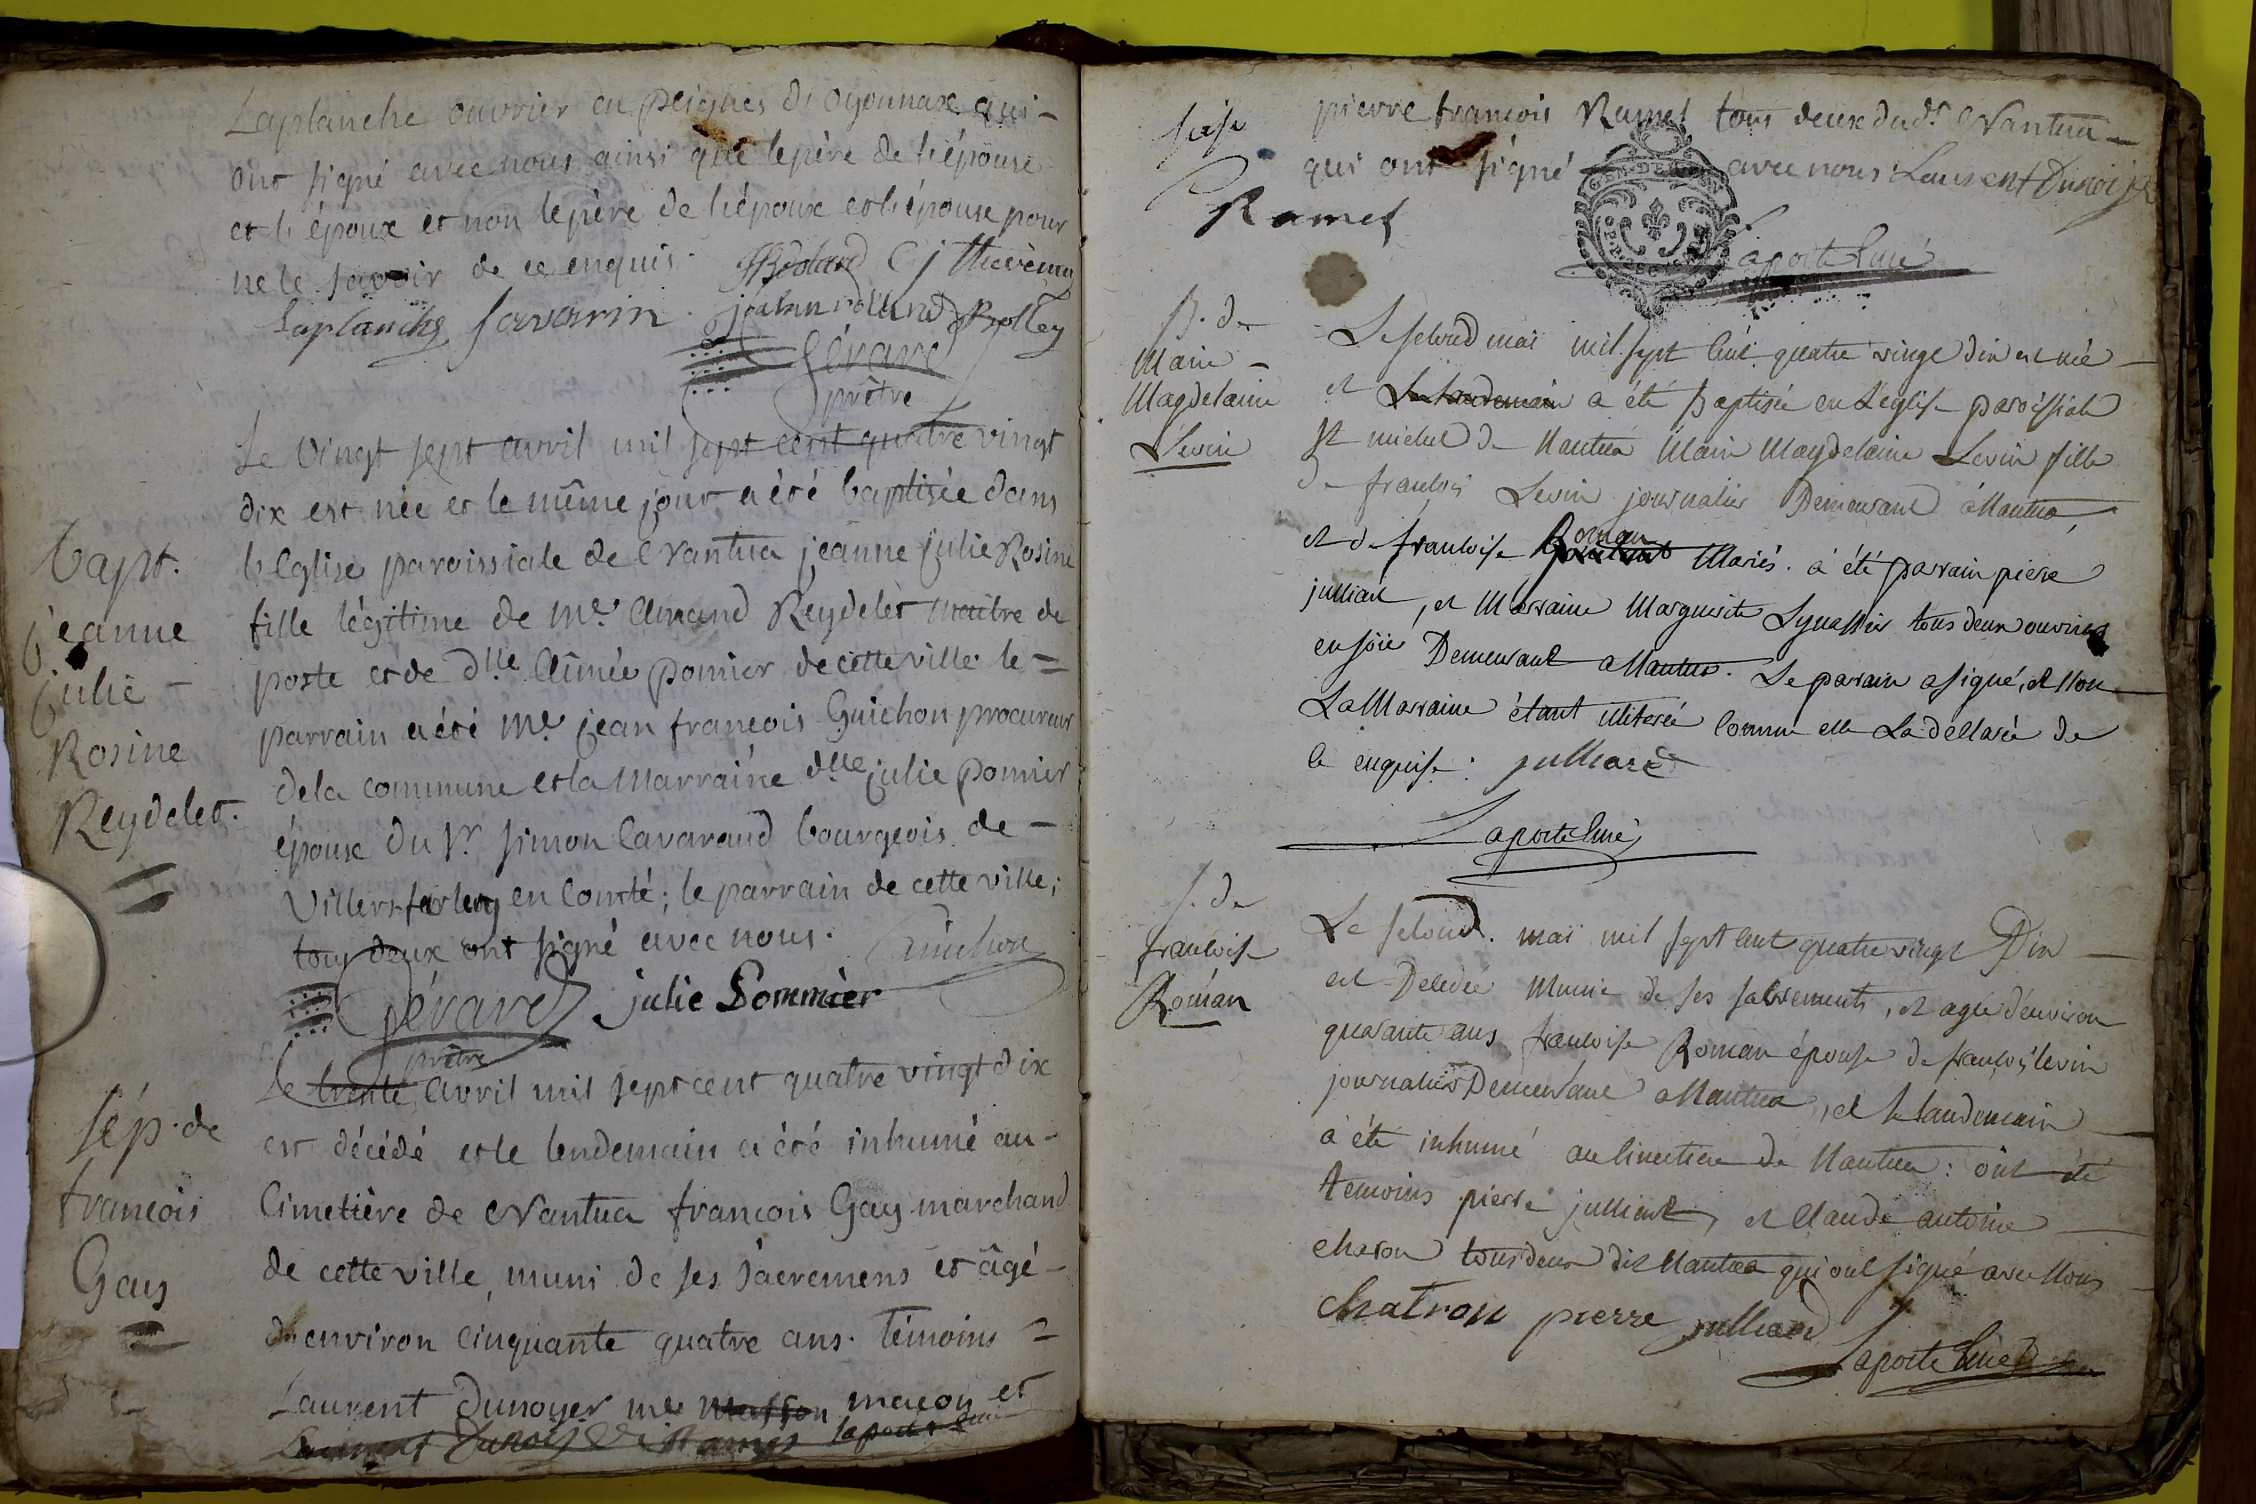 Laplanche ouvrier en peignes d'oyonnax qui -
ont signé avec nous ainsi que le père de l'épouse
et l'époux et non le père de l'époux et l'épouse pour
ne le savoir de ce enquis.
Laplanche savarin
Gérard
prêtre
Le vingt sept avril mil sept cent quatre vingt
dix est née et le même jour a été baptisée dans
l'Eglise paroissiale de Nantua jeanne julie Rosine
fille légitime de Me Amand Reydelet maitre de
poste et de dlle Aimée pomier de cette ville. le =
parrain a été Me jean francois Guichon procureur
de la commune et la Marraine dlle julie pomier
épouse du Sr simon Cavaraud bourgeois de -
Villersfarlay en Comté; le parrain de cette ville;
tous deux ont signé avec nous. Guichon
Gérard julie Pommier
prêtre
bapt.
jeanne
julie -
Rosine
Reydelet.
Le trente avril mil sept cent quatre vingt dix
est décédé et le lendemain a été inhumé au -
Cimetière de Nantua francois Gay marchand
de cette ville, muni de ses sacremens et âgé -
d'environ cinquante quatre ans. Témoins =
Laurent Dunoyer me masson macon et
sép. de
francois
Gay
pierre francois Ramel tous deux dud. Nantua -
qui ont signé avec nous Laurent Dunoyer
Ramel
Laporte Curé
B. de
Marie -
Magdelaine
Levin
Le second mai mil sept cent quatre vingt dix est née -
et Le landemain a été Baptisée en Leglise paroissiale
St michel de Nantua Marie Magdelaine Levin fille
de francois Levin journalier Demeurant a Nantua,
et de francoise Roman Mariés. a été parrain piere
julliard, et Marraine Marguerite tous deux ouvriers
en soie Demeurant a Nantua. Le parain a signé, et Non
La Marraine étant illiterée comme elle La déclaré de
ce enquise: julliard
Laporte Curé
S. de
francoise
Roman
Le second. mai mil sept cent quatre vingt Dix -
est Decedée Munie de ses sacrements, et agée d'environ
quarante ans francoise Roman épouse de francois levin
journalier Demeurant a Nantua, et le landemain -
a été inhumé au cimetiere de Nantua: ont été
temoins pierre julliard, et claude antoine -
charon tous deux dit Nantua qui ont signé avec Nous
chatron pierre julliard
Laporte Curé